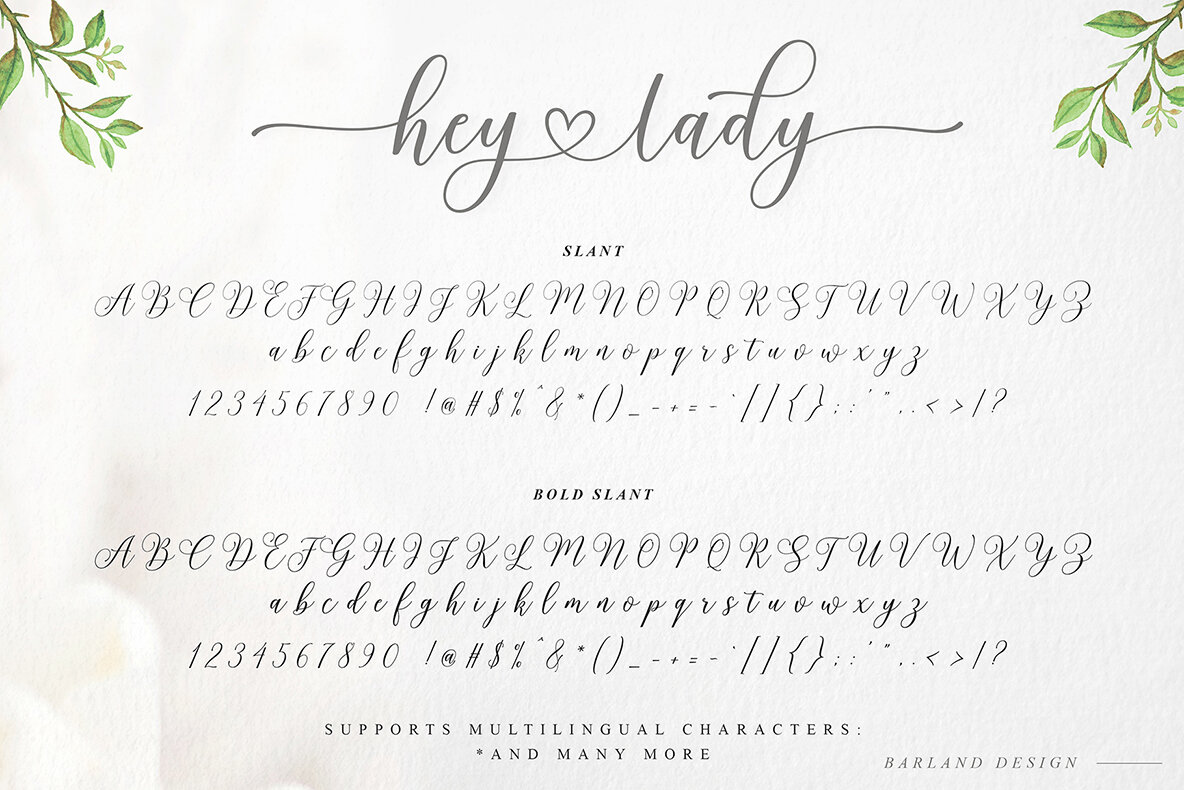 hey lady
SLANT
A B C D E F G H I J K L M N O P Q R S T U V W X Y Z
a b c d e f g h i j k l m n o p q r s t u v w x y z
1 2 3 4 5 6 7 8 9 0 ! @ # $ % ^ & * ( ) _ - + = ~ ` [ ] { } ; : ' " , . < > / ?
BOLD SLANT
A B C D E F G H I J K L M N O P Q R S T U V W X Y Z
a b c d e f g h i j k l m n o p q r s t u v w x y z
1 2 3 4 5 6 7 8 9 0 ! @ # $ % ^ & * ( ) _ - + = ~ ` [ ] { } ; : ' " , . < > / ?
SUPPORTS MULTILINGUAL CHARACTERS:
*AND MANY MORE
BARLAND DESIGN